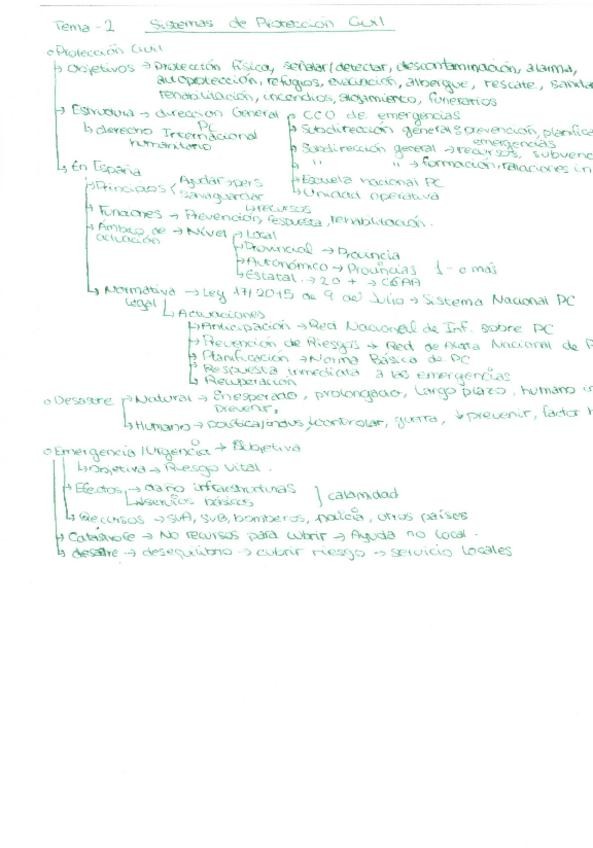 Tema - 2 Sistemas de Protección Civil
o Protección Civil
↳ Objetivos → Protección física, señalar/detectar, descontaminación, alarma,
autoprotección, refugios, evacuación, albergue, rescate,
rehabilitación, incendios, alojamiento, funerarios
↳ Estructura → dirección General PC ↳ CCO de emergencias
↳ derecho Internacional humanitario
↳ Subdirección general prevención, emergencias
↳ Subdirección general → recursos,
↳ " " → formación, relaciones
↳ Escuela nacional PC
↳ Unidad operativa
↳ En España
↳ Principios Ayudar → pers
Salvaguardar ↳ recursos
↳ Funciones → Prevención, respuesta, rehabilitación.
↳ Ámbito de actuación → Nivel ↳ Local
↳ Provincial → Provincia
↳ Autonómico → Provincias 1 - o más
↳ Estatal → 2 o + → CCAA
↳ Normativa legal → Ley 17/2015 de 9 de Julio → Sistema Nacional PC
↳ Actuaciones
↳ Anticipación → Red Nacional de Inf. sobre PC
↳ Prevención de Riesgos → Red de Alerta Nacional de
↳ Planificación → Norma Básica de PC
↳ Respuesta inmediata a las emergencias
↳ Recuperación
o Desastre ↳ Natural → Inesperado, prolongado, largo plazo, humano
prevenir,
↳ Humano → política/indus, controlar, guerra, ↓ prevenir, factor
o Emergencia / Urgencia → Subjetiva
↳ Objetiva → Riesgo vital.
↳ Efectos → daño infraestructuras
↳ servicios básicos } calamidad
↳ Recursos → SVA, SVB, bomberos, policía, otros países
↳ Catástrofe → No recursos para cubrir → Ayuda no local.
↳ desastre → desequilibrio → cubrir riesgo → servicio locales